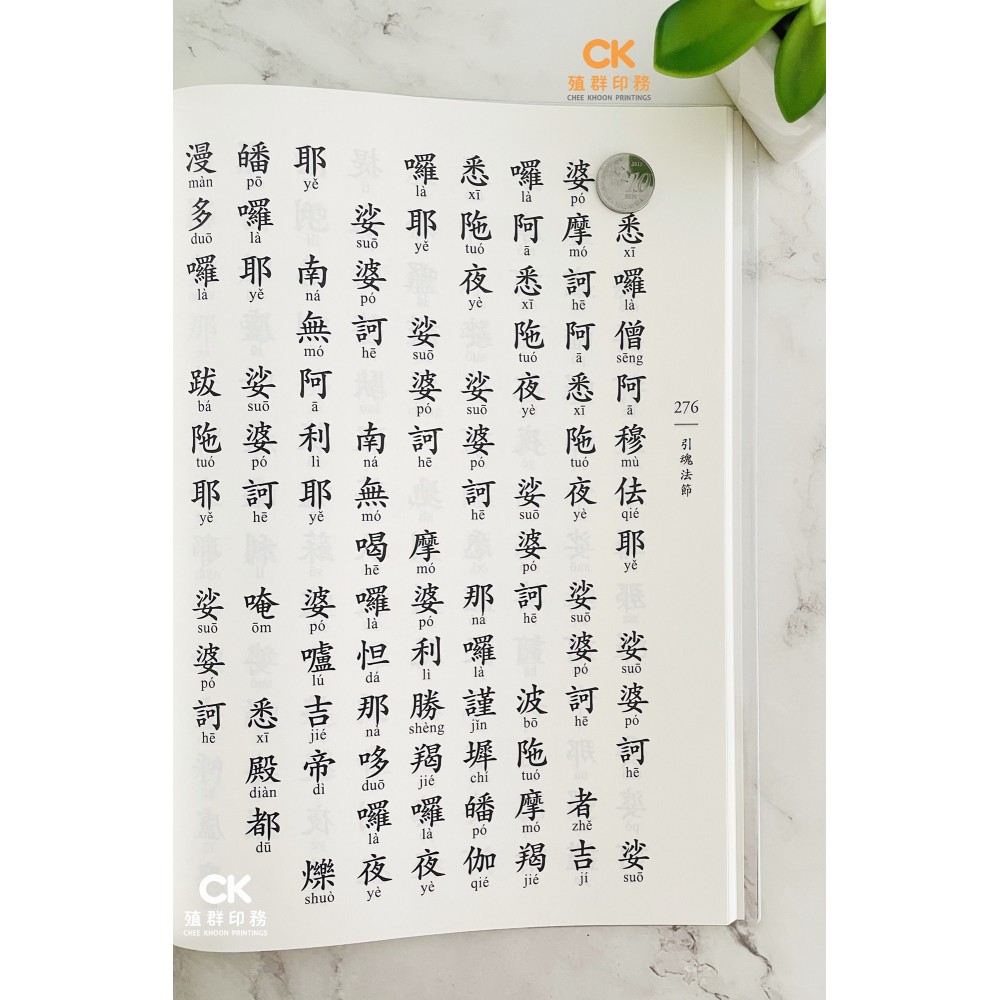 CK
殖群印務
CHEE KHOON PRINTINGS
276
引魂法節
悉囉僧阿穆佉耶 娑婆訶 娑
xī là sēng ā mù qié yě suō pó hē suō
婆摩訶阿悉陁夜 娑婆訶 者吉
pó mó hē ā xī tuó yè suō pó hē zhě jí
囉阿悉陁夜 娑婆訶 波陁摩羯
là ā xī tuó yè suō pó hē bō tuó mó jié
悉陁夜 娑婆訶 那囉謹墀皤伽
xī tuó yè suō pó hē ná là jǐn chí pó qié
囉耶 娑婆訶 摩婆利勝羯囉夜
là yě suō pó hē mó pó lì shèng jié là yè
娑婆訶 南無喝囉怛那哆囉夜
suō pó hē ná mó hē là dá ná duō là yè
耶 南無阿利耶 婆嚧吉帝 爍
yě ná mó ā lì yě pó lú jié dì shuò
皤囉耶 娑婆訶 唵 悉殿都
pō là yě suō pó hē ōm xī diàn dū
漫多囉 跋陁耶 娑婆訶
màn duō là bá tuó yě suō pó hē
CK
殖群印務
CHEE KHOON PRINTINGS